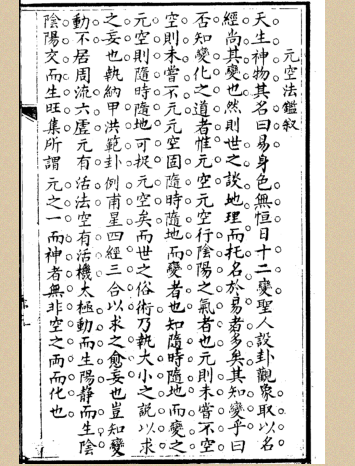 元空法鑑敘
天生神物其名曰易身色無恒日十二變聖人設卦觀象取以名
經尚其變也然則世之談地理而托名於易者多矣其知變乎曰
否知變化之道者惟元空元空行陰陽之氣者也元則未嘗不空
空則未嘗不元元空固隨時隨地而變者也知隨時隨地而變之
元空則隨時隨地可挨元空矣而世之俗術乃執大小之說以求
之妄也執納甲洪範卦例甫星四經三合以求之愈妄也豈知變
動不居周流六虛元有活法空有活機太極動而生陽靜而生陰
陰陽交而生旺集所謂元之一而神者無非空之両而化也